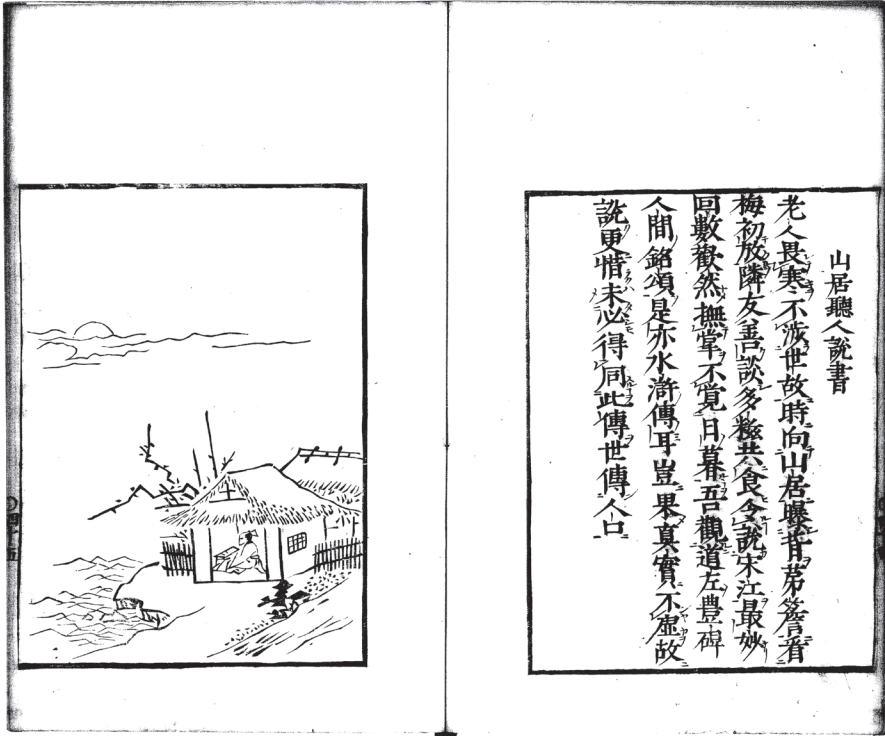 山居聽人說書
老人畏寒不涉世故時向山居曝背茅簷看
梅初放隣友善談多糍共食令說宋江最妙
回數歡然撫掌不覺日暮吾觀道左豐碑
人間銘頌是亦水滸傳耳豈果真實不虛故
說更惜未必得同此傳世傳人口